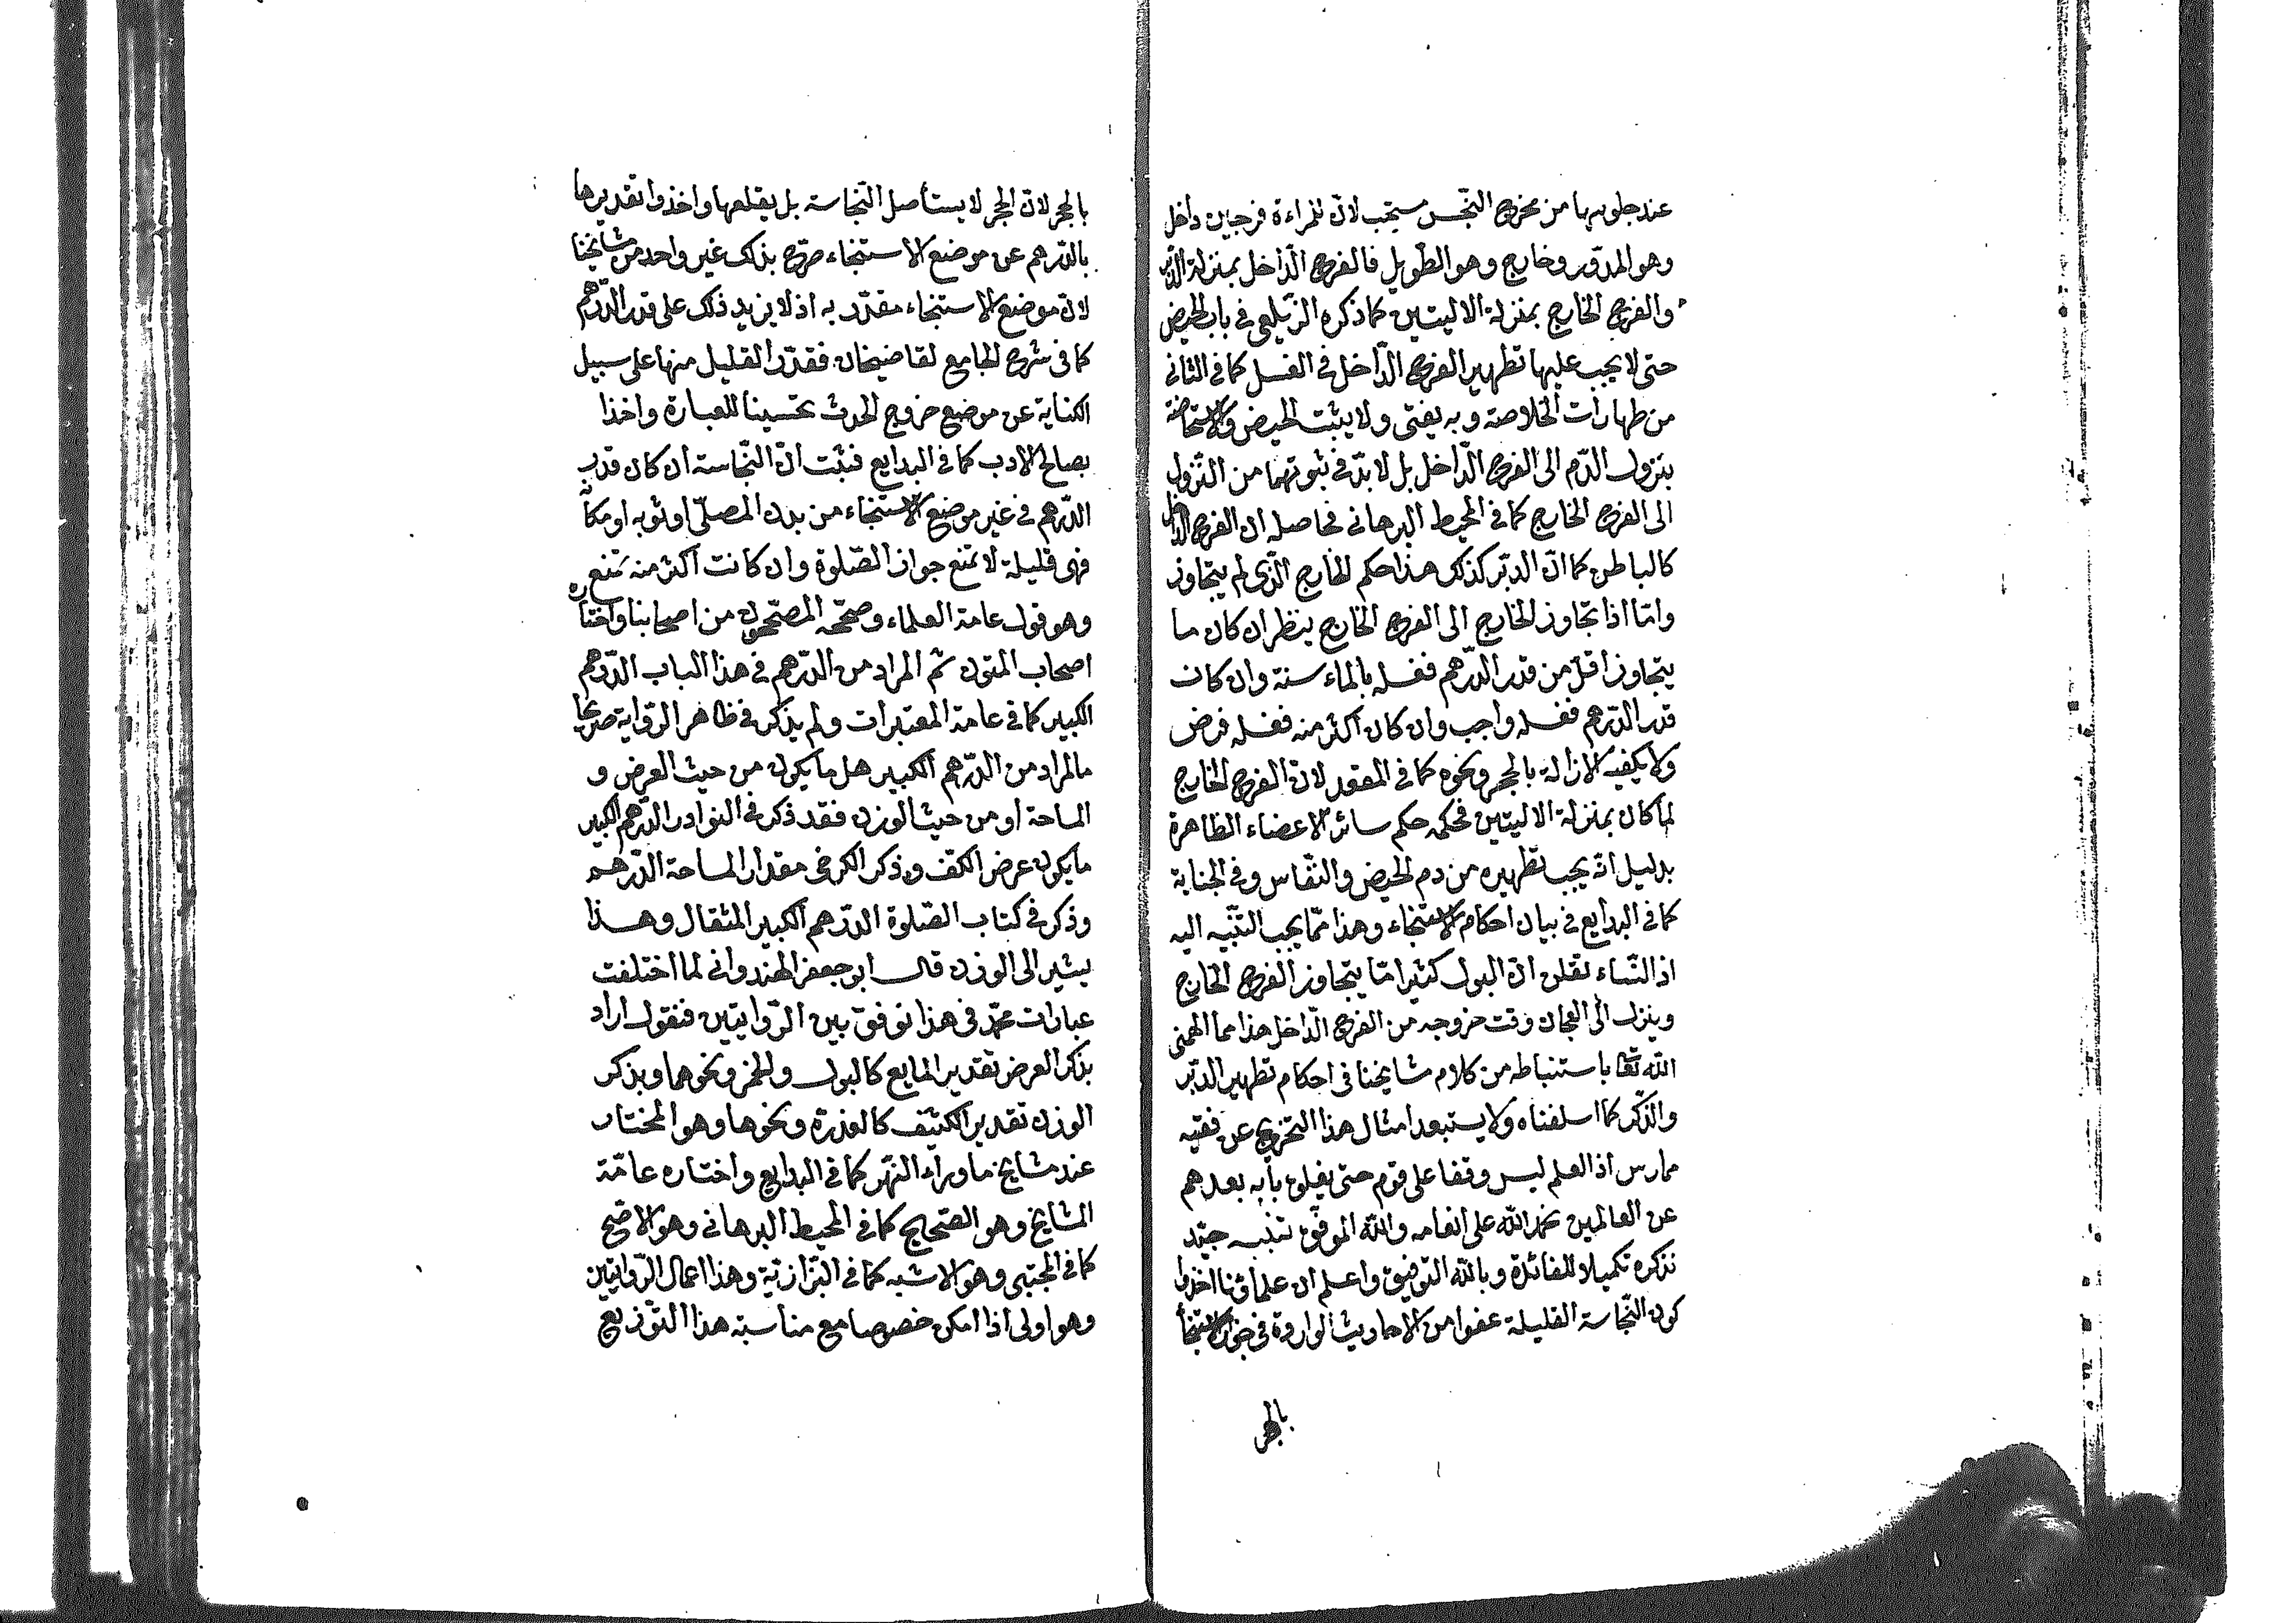 عند جلوسها من مخرج النّجس مستحب لانّ للمراءة فرجين داخل
وهو المدوّر وخارج وهو الطّويل فالفرج الدّاخل بمنزلة الدّبر
والفرج الخارج بمنزلة الاليتين كما ذكره الزّيلعى فى باب الحيض
حتى لا يجب عليها تطهير الفرج الدّاخل فى الغسل كما فى الثانى
من طهارات الخلاصة وبه يفتى ولا يثبت الحيض والاستحاضة
بنزول الدّم الى الفرج الدّاخل بل لا بدّ فى ثبوتهما من النّزول
الى الفرج الخارج كما فى المحيط البرهانى فحاصله ان الفرج الداخل
كالباطن كما انّ الدبّر كذلك هذا حكم الخارج الّذى لم يتجاوز
وامّا اذا تجاوز الخارج الى الفرج الخارج ينظر ان كان ما
يتجاوز اقلّ من قدر الدّرهم فغسله بالماء سنة وان كان
قدر الدّرهم فغسله واجب وان كان اكثر منه فغسله فرض
ولا يكفيه الازالة بالحجر ونحوه كما فى المقعد لانّ الفرج الخارج
لما كان بمنزلة الاليتين فحكمه حكم سائر الاعضاء الظاهرة
بدليل انّه يجب تطهيره من دم الحيض والنّفاس وفى الجنابة
كما فى البدايع فى بيان احكام الاستنجاء وهذا ممّا يجب التنبّه اليه
اذ النّساء تغفلن انّ البول كثيرا مّا يتجاوز الفرج الخارج
وينزل الى العجان وقت خروجه من الفرج الدّاخل هذا مما الهمنى
الله تعا باستنباطه من كلام مشايخنا فى احكام تطهير الدبّر
والذّكر كما اسلفناه ولا يستبعد امثال هذا التخريج عن فقيه
ممارس اذ العلم ليس وقفا على قوم حتى يغلق بابه بعدهم
عن العالمين نحمد الله على انعامه والله الموفّق تنبيه جيّد
نذكره تكميلا للفائدة وبالله التوفيق واعلم ان علمأؤنا اخذوا
كون النّجاسة القليلة عفوا من الاحاديث الواردة فى جواز الاستنجأ
بالحجر
بالحجر لانّ الحجر لا يستأصل النّجاسة بل يقلعها واخذوا تقديرها
بالدّرهم عن موضع الاستنجاء صرّح بذلك غير واحد من مشايخنا
لانّ موضع الاستنجاء مقدّر به اذ لا يزيد ذلك على قدر الدّرهم
كما فى شرح الجامع لقاضيخان فقدّر القليل منها على سبيل
الكناية عن موضع خروج الحدث تحسينا للعبارة واخذا
بصالح الادب كما فى البدايع فثبت انّ النّجاسة ان كان قدر
الدّرهم فى غير موضع الاستنجاء من بدن المصلّى او ثوبه او مكانه
فهى قليلة لا تمنع جواز الصّلوة وان كانت اكثر منه تمنع
وهو قول عامة العلماء وصحّحه المصحّحون من اصحابنا واختاره
اصحاب المتون ثم المراد من الدّرهم فى هذا الباب الدّرهم
الكبير كما فى عامة المعتبرات ولم يذكر فى ظاهر الرّواية صريحا
ما المراد من الدّرهم الكبير هل ما يكون من حيث العرض و
المساحة او من حيث الوزن فقد ذكر فى النوادر الدّرهم الكبير
ما يكون عرض الكفّ وذكر الكرخى مقدار المساحة الدّرهم
وذكر فى كتاب الصّلوة الدّرهم الكبير المثقال وهذا
يشير الى الوزن قال ابو جعفر الهندوانى لما اختلفت
عبارات محمّد فى هذا نوفّق بين الرّوايتين فنقول اراد
بذكر العرض تقدير المايع كالبول والخمر ونحوهما وبذكر
الوزن تقدير الكثيف كالعذرة ونحوها وهو المختار
عند مشايخ ما وراء النّهر كما فى البدايع واختاره عامّة
المشايخ وهو الصّحيح كما فى المحيط البرهانى وهو الاصّح
كما فى المجتبى وهو الاشبه كما فى البزّازيّة وهذا اعمال الرّوايتين
وهو اولى اذا امكن خصوصا مع مناسبة هذا التّوزيع